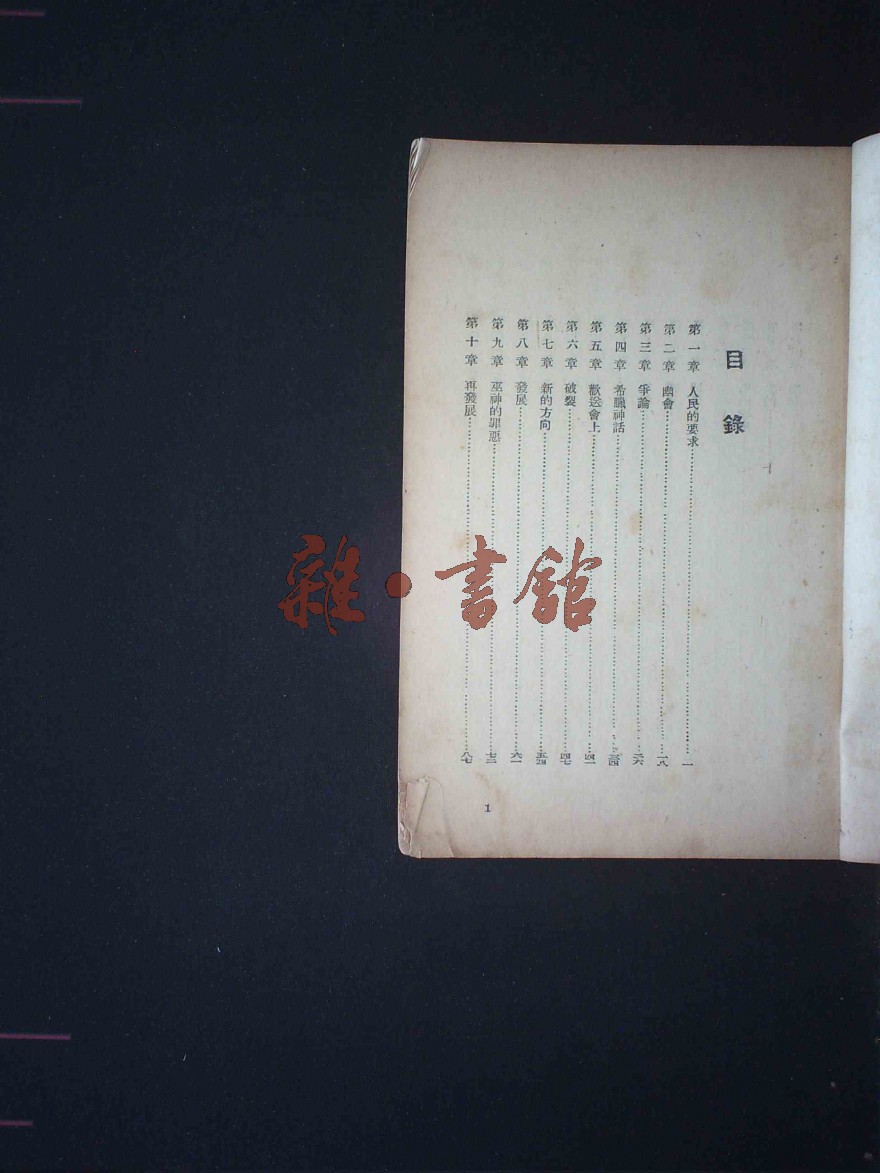 目錄
第一章 人民的要求…………一
第二章 幽會…………一八
第三章 爭論…………二六
第四章 希臘神話…………三四
第五章 歡送會上…………四一
第六章 破裂…………四七
第七章 新的方向…………五四
第八章 發展…………六一
第九章 巫神的罪惡…………七三
第十章 再發展…………八七
1
雜·書館